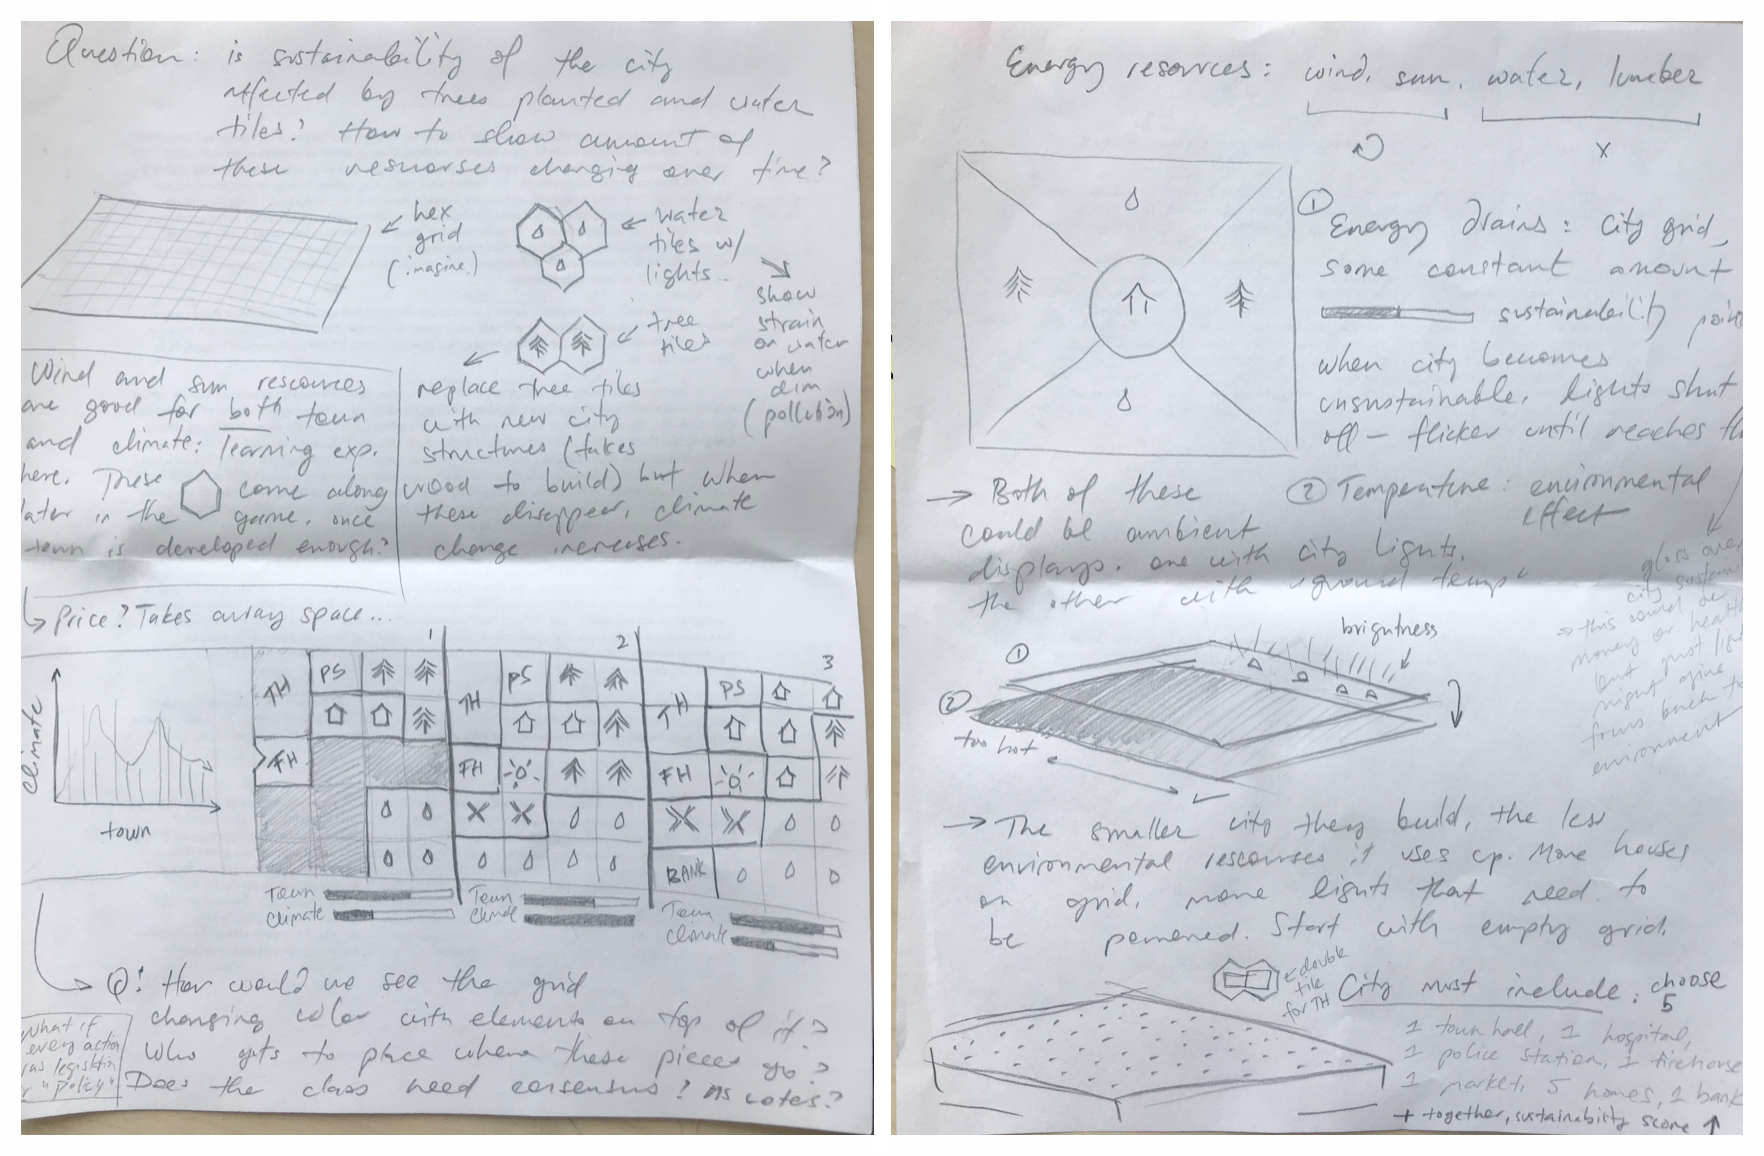 Question: is sustainability of the city
affected by trees planted and water
tiles? How to show amount of
these resourses changing over time?
hex
grid
(imagine)
water
tiles w/
lights...
show
strain
on water
when
dim
(pollution)
tree
tiles
Wind and sun rescources
are good for both town
and climate: learning exp.
here. These come along
later in the game, once
town is developed enough?
replace tree tiles
with new city
structures (takes
wood to build) but when
these disappear, climate
change increases.
Price? Takes away space...
climate
town
1
2
3
TH
PS
FH
TH
PS
FH
TH
PS
FH
BANK
Town
climate
Town
climate
Town
climate
Q! How would we see the grid
changing color with elements on top of it?
Who gets to place where these pieces go?
Does the class need consensus? As votes?
What if
every action
was legislation
or "policy"
Energy resources: wind, sun, water, lumber
x
1
Energy drains: city grid,
some constant amount
sustainability
when city becomes
unsustainable, lights shut
off - flicker until reaches
→ Both of these
could be ambient
displays. one with city lights,
the other with ground temp
2 Temperature: environmental
effect
city
→ this could be
money or health
but just light
might give
focus back to
environment
1
brightness
2
too hot
→ The smaller city they build, the less
environmental rescourses it uses up. More houses
on grid, more lights that need to
be powered. Start with empty grid.
double
tile
for TH
City must include: choose
5
1 town hall, 1 hospital,
1 police station, 1 firehouse
1 market, 5 homes, 1 bank
+ together, sustainability score ↑